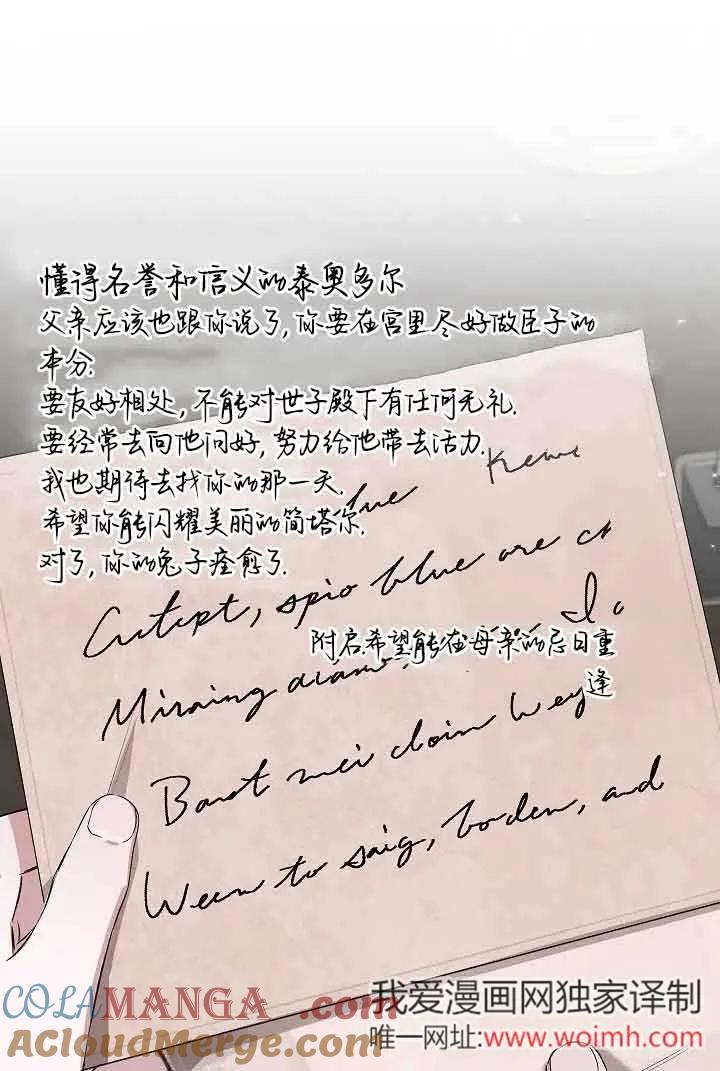 懂得名誉和信义的泰奥多尔
父亲应该也跟你说了,你要在宫里尽好做臣子的
本分.
要友好相处,不能对世子殿下有任何无礼.
要经常去向他问好,努力给他带去活力.
我也期待去找你的那一天.
希望你能闪耀美丽的简塔尔.
对了,你的兔子痊愈了.
blue are
Miraing
附启.希望能在母亲的忌日重
逢
Boat mei cloin wey
Ween to saig, borden, and
COLAMANGA.COM
AcloudMerge.com
我爱漫画网独家译制
唯一网址:www.woimh.com